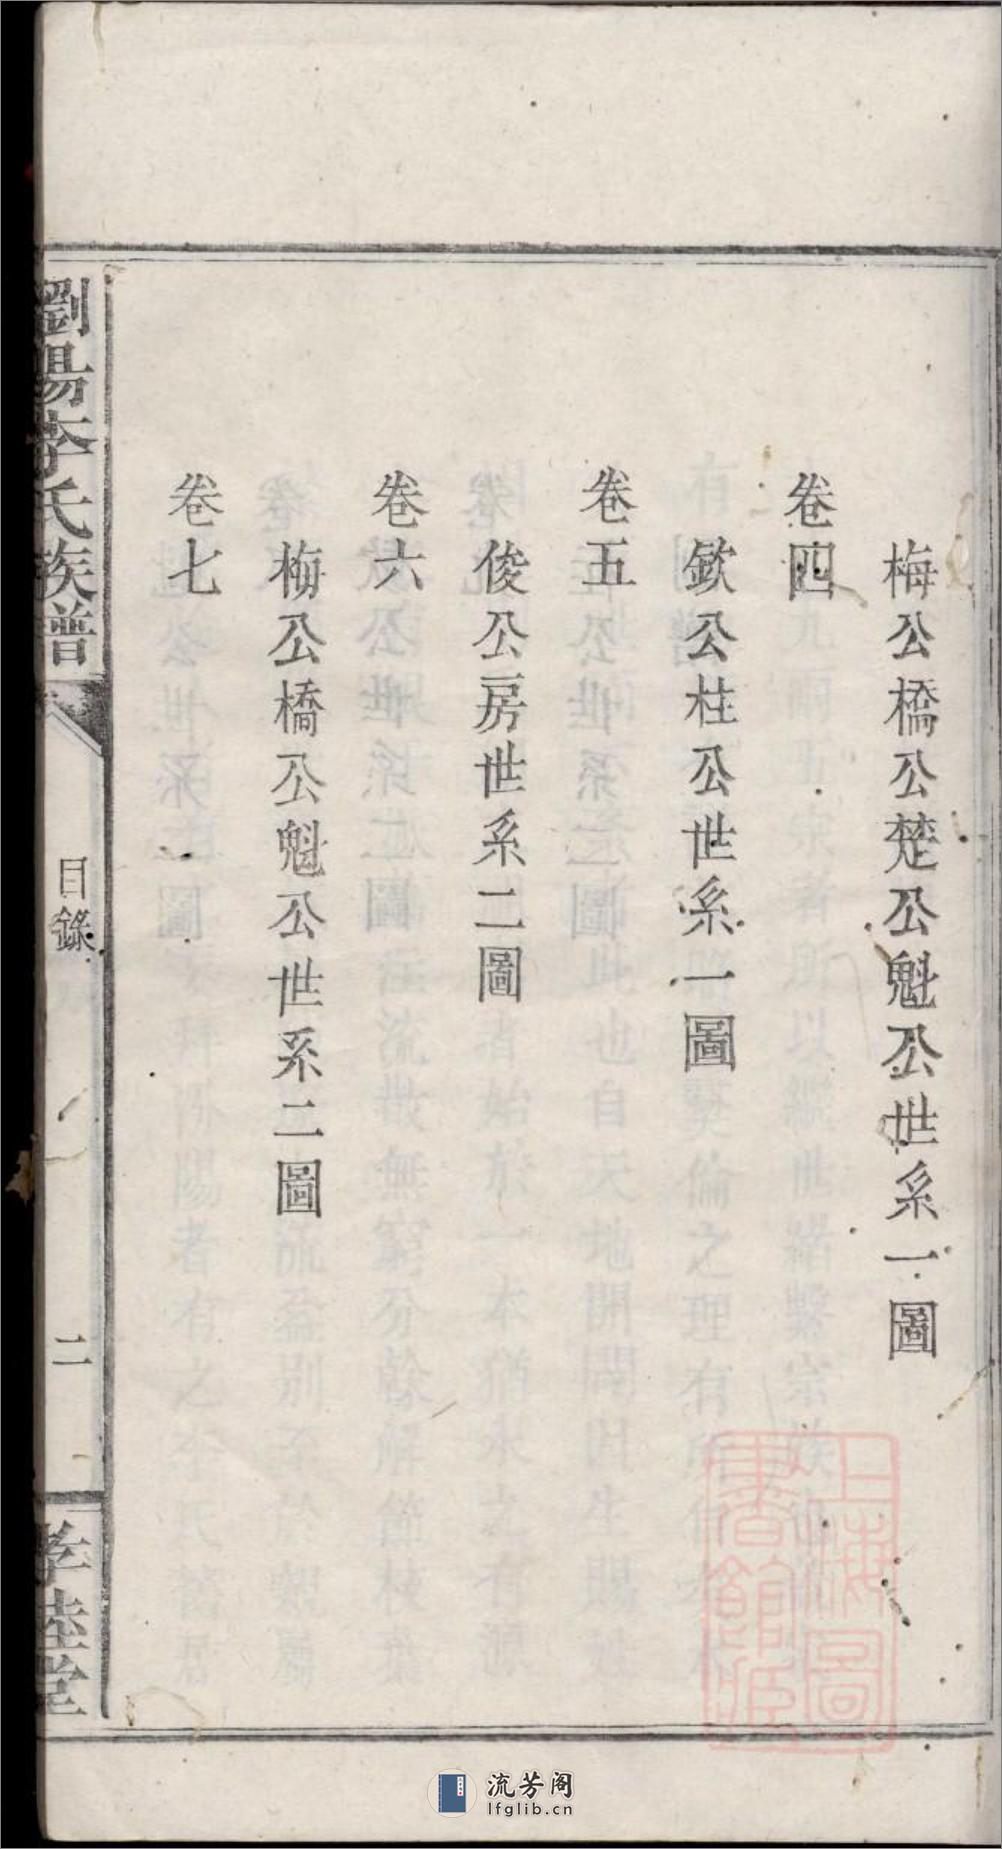 梅公橋公楚公魁公世系一圖
卷四
欽公柱公世系一圖
卷五
俊公房世系二圖
卷六
梅公橋公魁公世系二圖
卷七
劉陽李氏族譜
目錄
二
孝睦堂
上海圖
書館藏
流芳阁
lfglib.cn